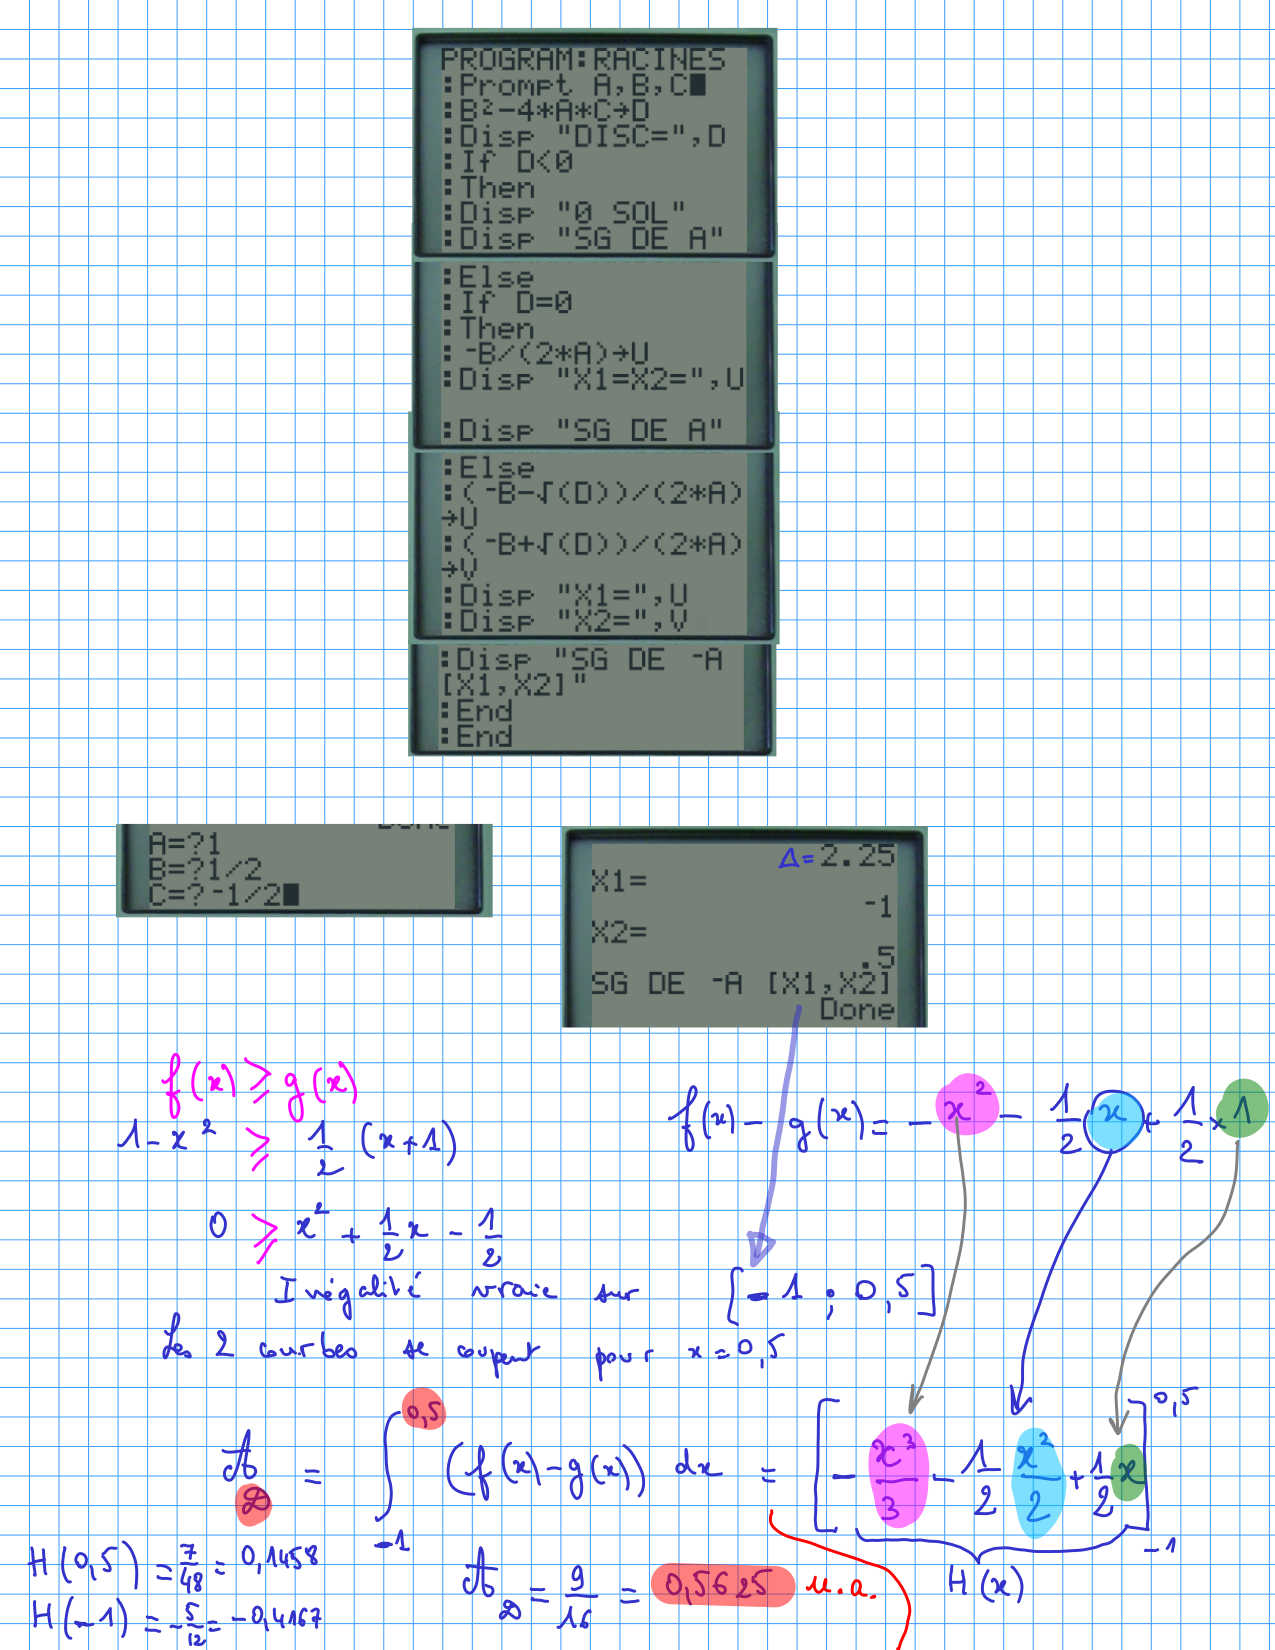 PROGRAM:RACINES
:Prompt A,B,C
:B²-4*A*C→D
:Disp "DISC=",D
:If D<0
:Then
:Disp "0 SOL"
:Disp "SG DE A"
:Else
:If D=0
:Then
:-B/(2*A)→U
:Disp "X1=X2=",U
:Disp "SG DE A"
:Else
:(-B-√(D))/(2*A)
→U
:(-B+√(D))/(2*A)
→V
:Disp "X1=",U
:Disp "X2=",V
:Disp "SG DE -A
[X1,X2]"
:End
:End
Done
A=?1
B=?1/2
C=?-1/2
Δ=2.25
X1=
-1
X2=
.5
SG DE -A [X1,X2]
Done
f(x) ⩾ g(x)
1-x² ⩾ 1/2 (x+1)
0 ⩾ x² + 1/2 x - 1/2
Inégalité vraie sur [-1 ; 0,5]
Les 2 courbes se coupent pour x=0,5
f(x) - g(x) = -x² - 1/2 x + 1/2 × 1
A_D = ∫_{-1}^{0,5} (f(x)-g(x)) dx = [-x³/3 - 1/2 x²/2 + 1/2 x]_{-1}^{0,5}
H(x)
H(0,5) = 7/48 = 0,1458
H(-1) = -5/12 = -0,4167
A_D = 9/16 = 0,5625 u.a.